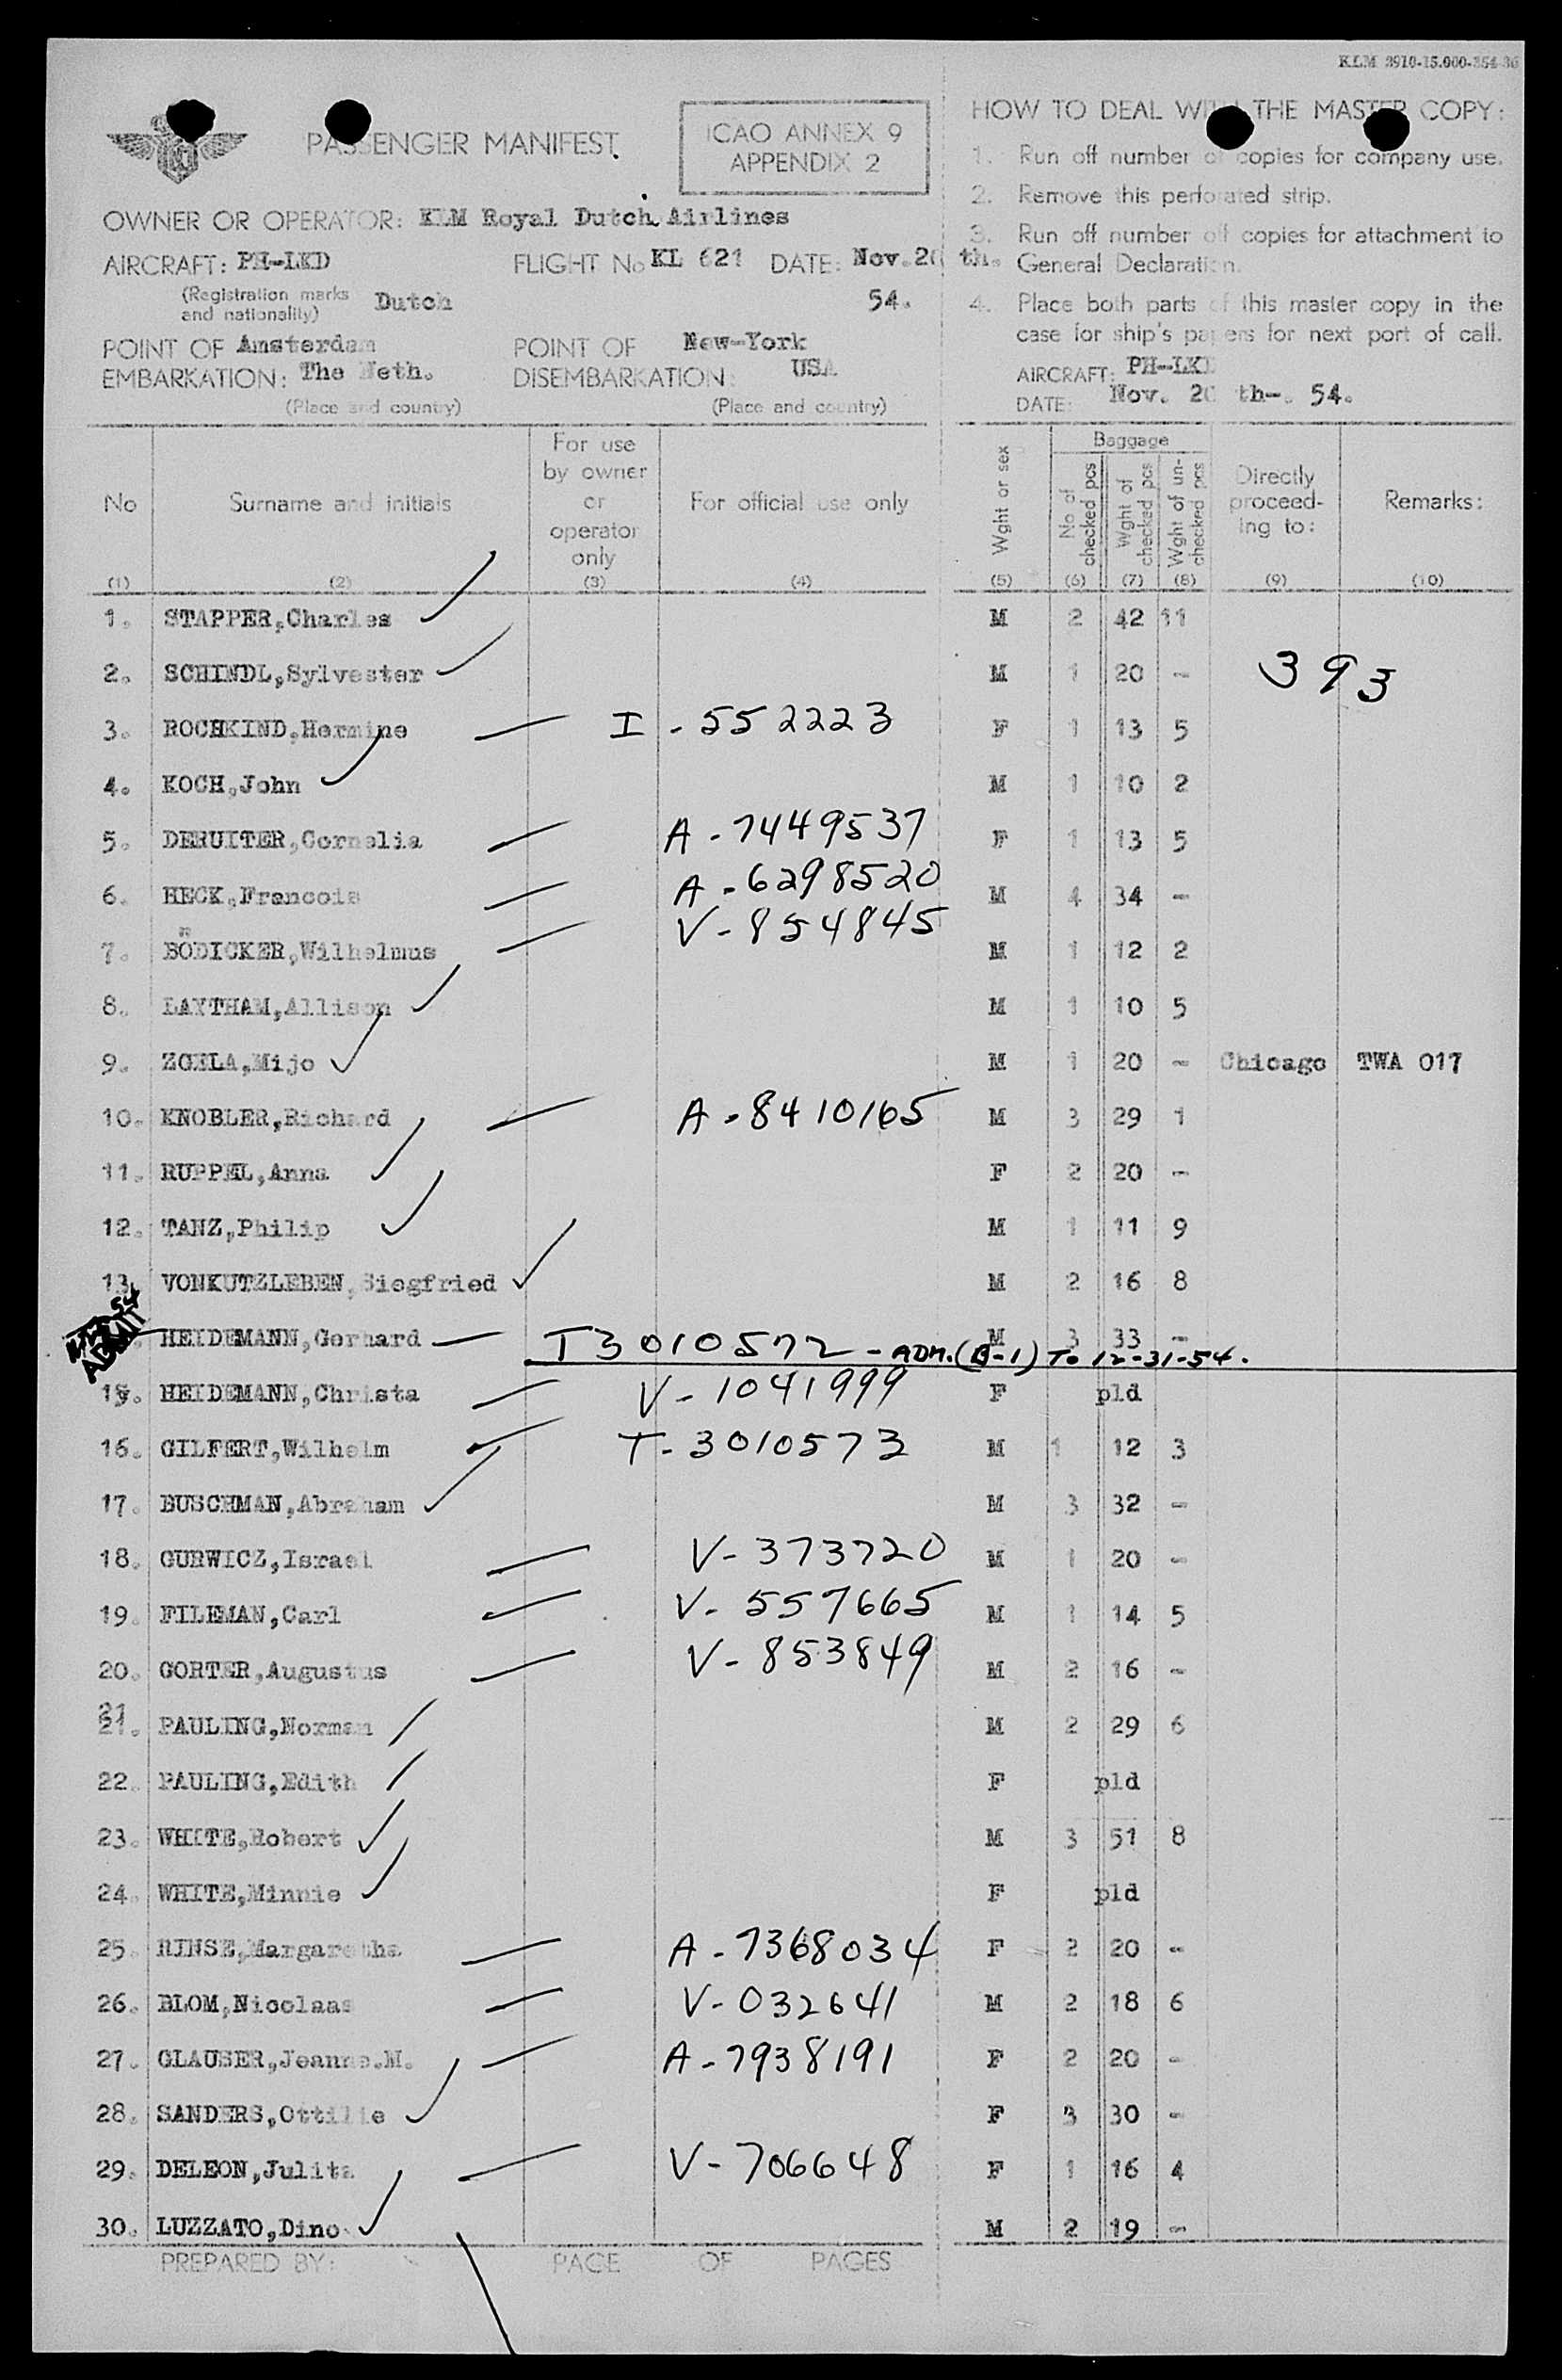 KLM 2910-15.000-354-36
PASSENGER MANIFEST
ICAO ANNEX 9
APPENDIX 2
OWNER OR OPERATOR: KLM Royal Dutch Airlines
AIRCRAFT: PH-LKD FLIGHT No KL 621 DATE: Nov.20 th.
(Registration marks and nationality) Dutch 54.
POINT OF EMBARKATION: Amsterdam The Neth.
POINT OF DISEMBARKATION: New-York USA
(Place and country) (Place and country)
HOW TO DEAL WITH THE MASTER COPY:
1. Run off number of copies for company use.
2. Remove this perforated strip.
3. Run off number of copies for attachment to
General Declaration.
4. Place both parts of this master copy in the
case for ship's papers for next port of call.
AIRCRAFT: PH-LKD
DATE: Nov. 20 th-. 54.
No Surname and initials For use by owner or operator only For official use only Wght or sex Baggage No of checked pcs Wght of checked pcs Wght of un-checked pcs Directly proceed-ing to: Remarks:
(1) (2) (3) (4) (5) (6) (7) (8) (9) (10)
1. STAPPER,Charles M 2 42 11
2. SCHINDL,Sylvester M 1 20 - 393
3. ROCHKIND,Hermine I - 552223 F 1 13 5
4. KOCH,John M 1 10 2
5. DERUITER,Cornelia A - 7449537 F 1 13 5
6. HECK,Francois A - 6298520 M 4 34 -
7. BÖDICKER,Wilhelmus V - 854845 M 1 12 2
8. LAYTHAM,Allison M 1 10 5
9. ZGELA,Mijo M 1 20 - Chicago TWA 017
10. KNOBLER,Richard A - 8410165 M 3 29 1
11. RUPPEL,Anna F 2 20 -
12. TANZ,Philip M 1 11 9
13. VONKUTZLEBEN,Siegfried M 2 16 8
ADMIT HEIDEMANN,Gerhard T3010572 - ADM. (B-1) To 12-31-54. M 3 33 -
15. HEIDEMANN,Christa V - 1041999 F pld
16. GILFERT,Wilhelm T - 3010573 M 1 12 3
17. BUSCHMAN,Abraham M 3 32 -
18. GURWICZ,Israel V - 373720 M 1 20 -
19. FILEMAN,Carl V - 557665 M 1 14 5
20. GORTER,Augustus V - 853849 M 2 16 -
21. PAULING,Norman M 2 29 6
22. PAULING,Edith F pld
23. WHITE,Robert M 3 51 8
24. WHITE,Minnie F pld
25. RINSE,Margaretha A - 7368034 F 2 20 -
26. BLOM,Nicolaas V - 032641 M 2 18 6
27. GLAUSER,Jeanne.M. A - 7938191 F 2 20 -
28. SANDERS,Ottilie F 3 30 -
29. DELEON,Julita V - 706648 F 1 16 4
30. LUZZATO,Dino M 2 19 -
PREPARED BY: PAGE OF PAGES